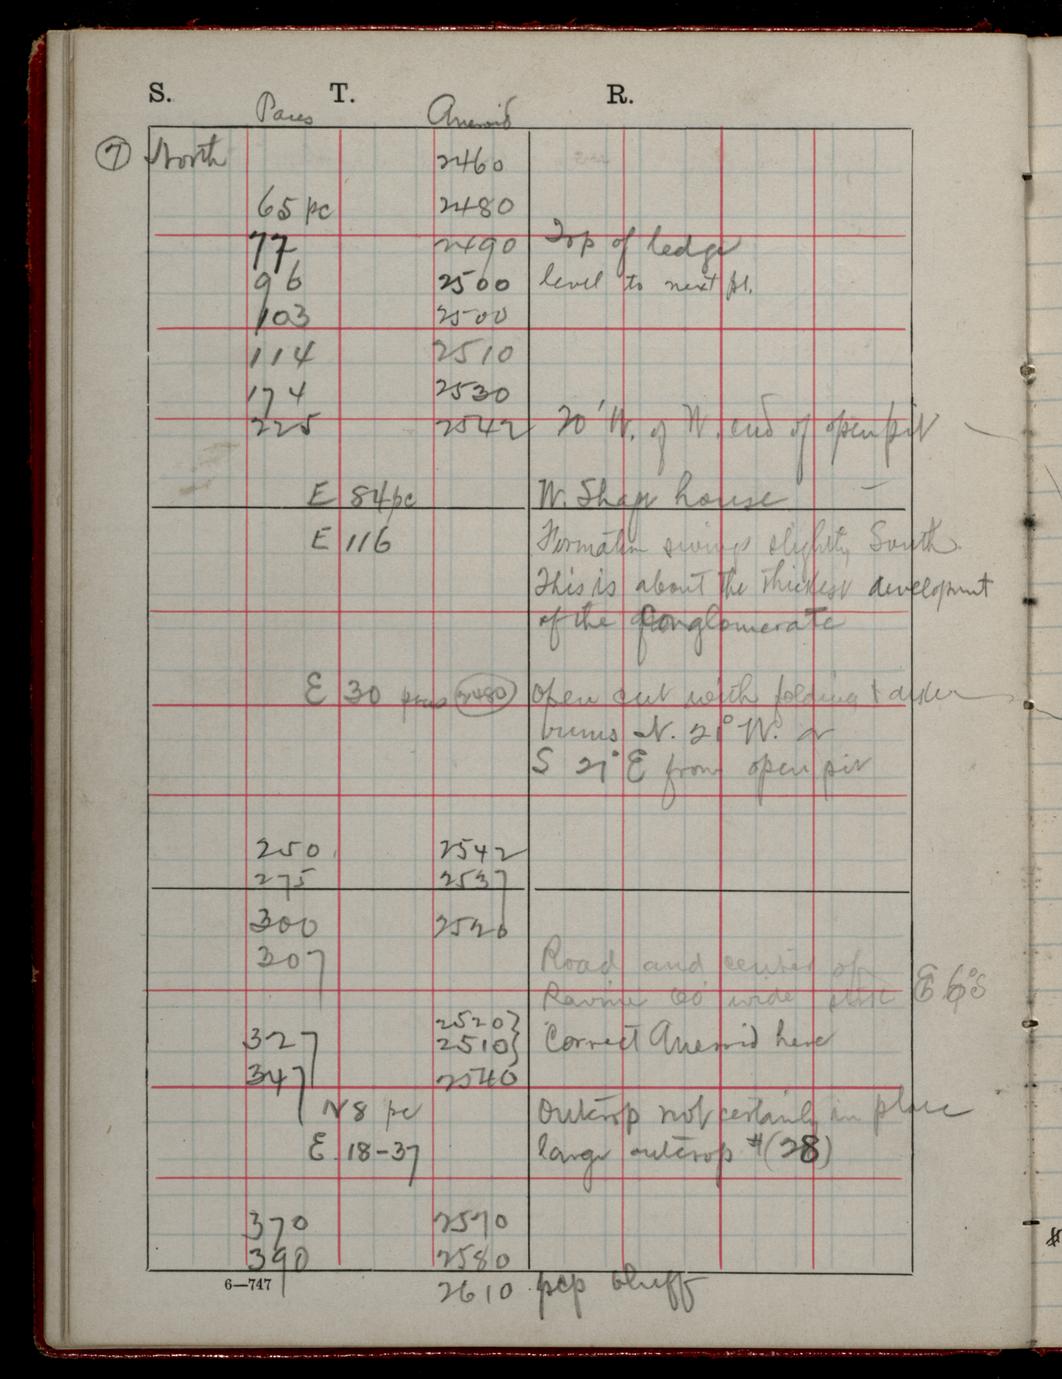 S. T. R.
Paces Aneroid
7 North 2460
65 pc 2480
77 2490 Top of ledge
96 2500 level to next pt.
103 2500
114 2510
174 2530
225 2542 20' W. of W. end of open pit
E 84 pc W. Shaft house
E 116 Formation swings slightly South
This is about the thickest development
of the Conglomerate
E 30 paces 2480 open cut with folding &
bears N. 21° W. or
S 21° E from open pit
250 2542
275 2537
300 2526
307 Road and center of
Ravine 60' wide E 6° S
2520}
327 2510} Correct Aneroid here
347 2540
N 8 pc Outcrop not certainly in place
E. 18-37 large outcrop #(28)
370 2570
390 2580
6—747
2610 bluff